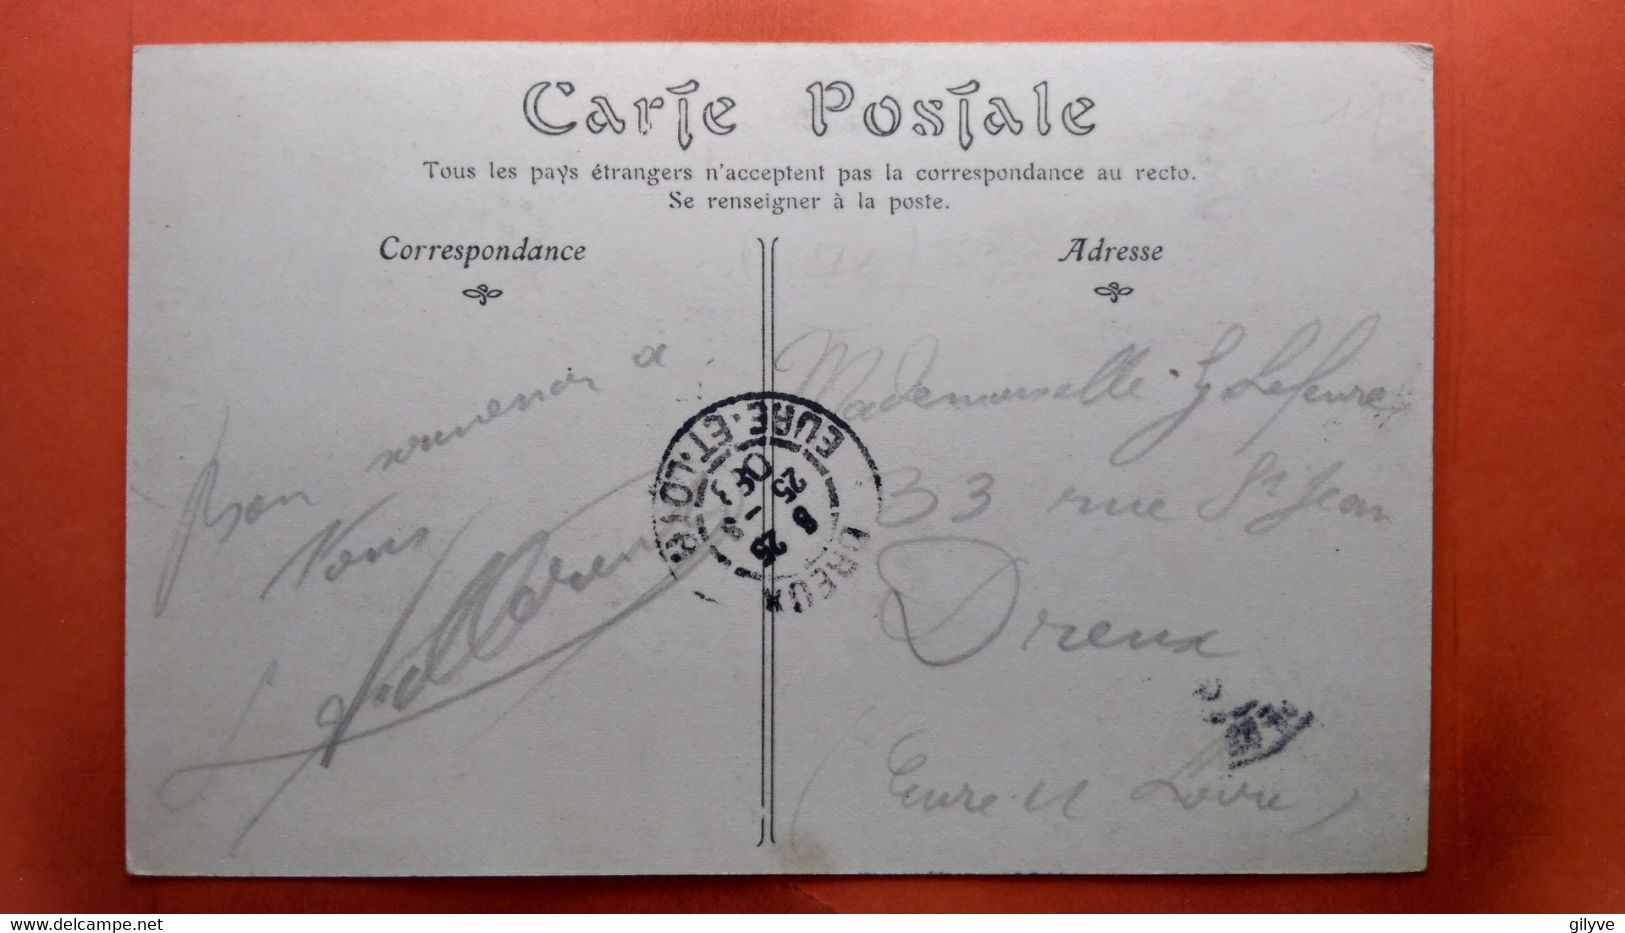 Carte Postale
Tous les pays étrangers n'acceptent pas la correspondance au recto.
Se renseigner à la poste.
Correspondance
Bon souvenir a
Vous
Adresse
Mademoiselle G Lefeuvre
33 rue St Jean
Dreux
(Eure et Loire)
DREUX
EURE-ET-LOIRE
gilyve